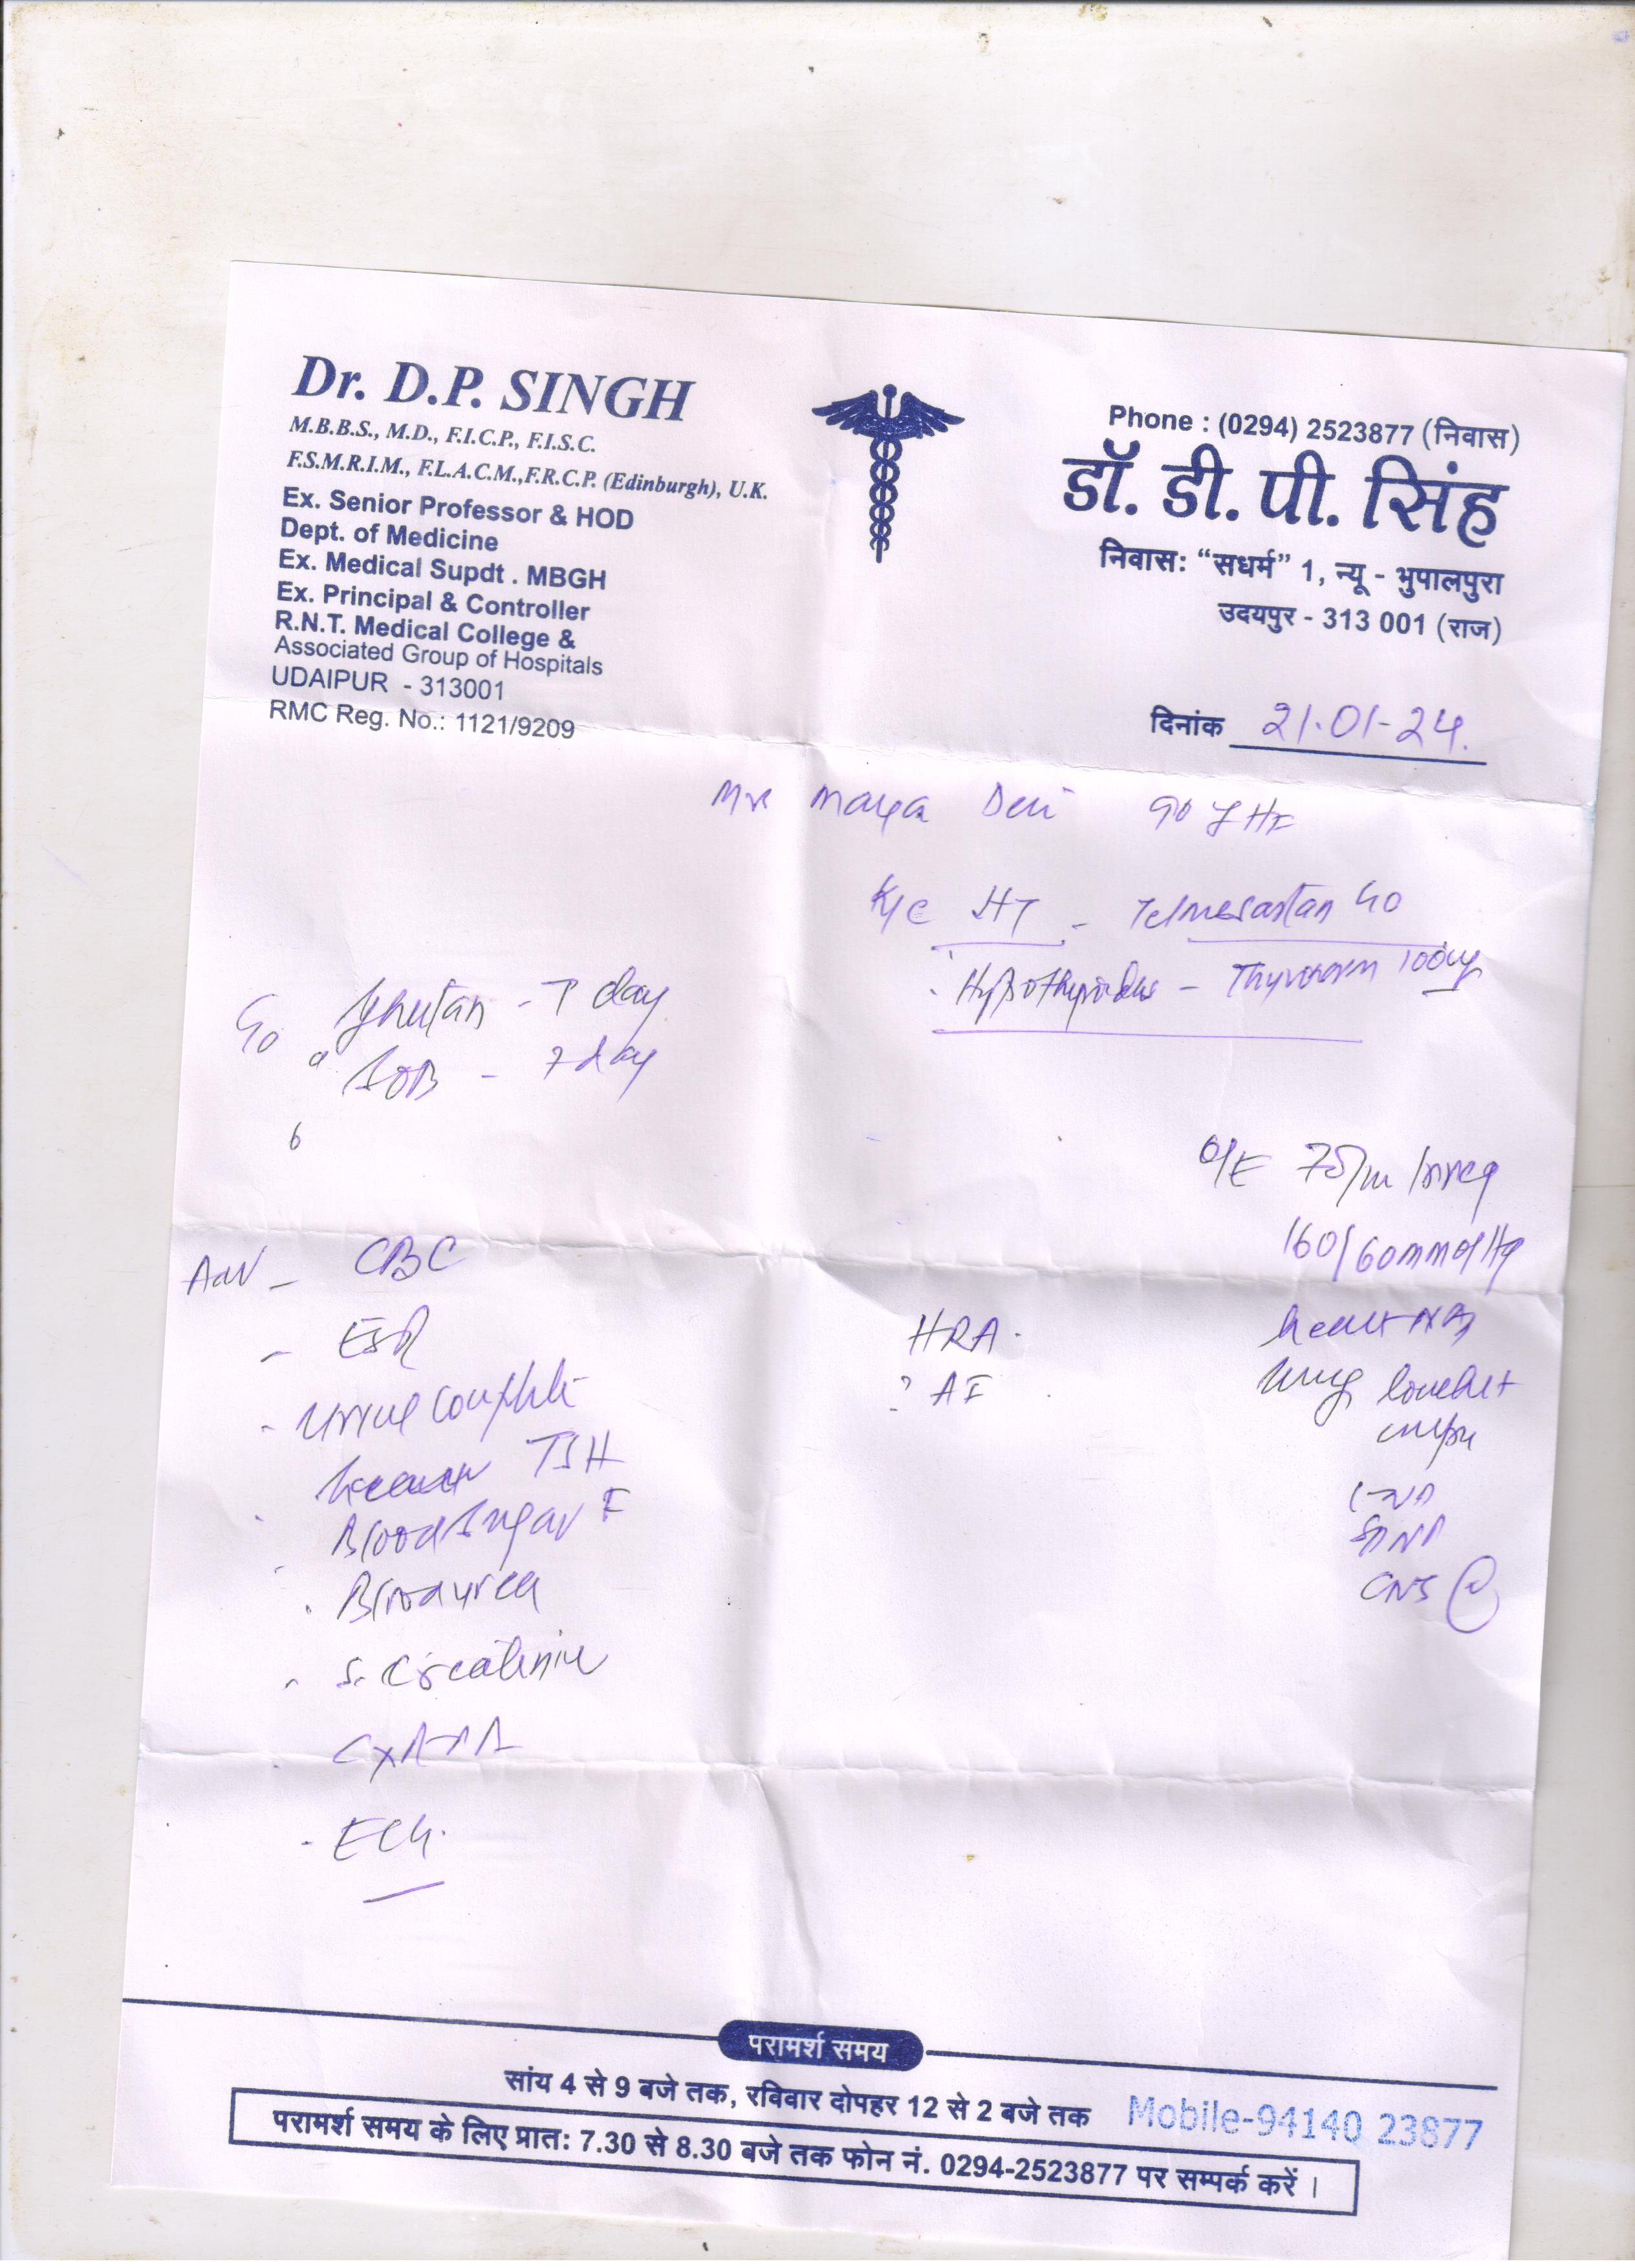 Dr. D.P. SINGH
M.B.B.S., M.D., F.I.C.P., F.I.S.C.
F.S.M.R.I.M., F.L.A.C.M.,F.R.C.P. (Edinburgh), U.K.
Ex. Senior Professor & HOD
Dept. of Medicine
Ex. Medical Supdt . MBGH
Ex. Principal & Controller
R.N.T. Medical College &
Associated Group of Hospitals
UDAIPUR - 313001
RMC Reg. No.: 1121/9209
Phone : (0294) 2523877 (निवास)
डॉ. डी. पी. सिंह
निवास: “सधर्म” 1, न्यू - भुपालपुरा
उदयपुर - 313 001 (राज)
दिनांक 21.01-24.
Maya Devi
K/C HT - Telmesartan 40
- Thyronorm 100
Ghutan - 7 day
SOB - 7 day
O/E
160/60 mm of Hg
Adv - CBC
- ESR
- Urine Complete
TSH
Blood Sugar F
. Blood urea
. S. Creatinine
- ECG.
HRA.
? AF
CNS
परामर्श समय
सांय 4 से 9 बजे तक, रविवार दोपहर 12 से 2 बजे तक
Mobile-94140 23877
परामर्श समय के लिए प्रात: 7.30 से 8.30 बजे तक फोन नं. 0294-2523877 पर सम्पर्क करें ।